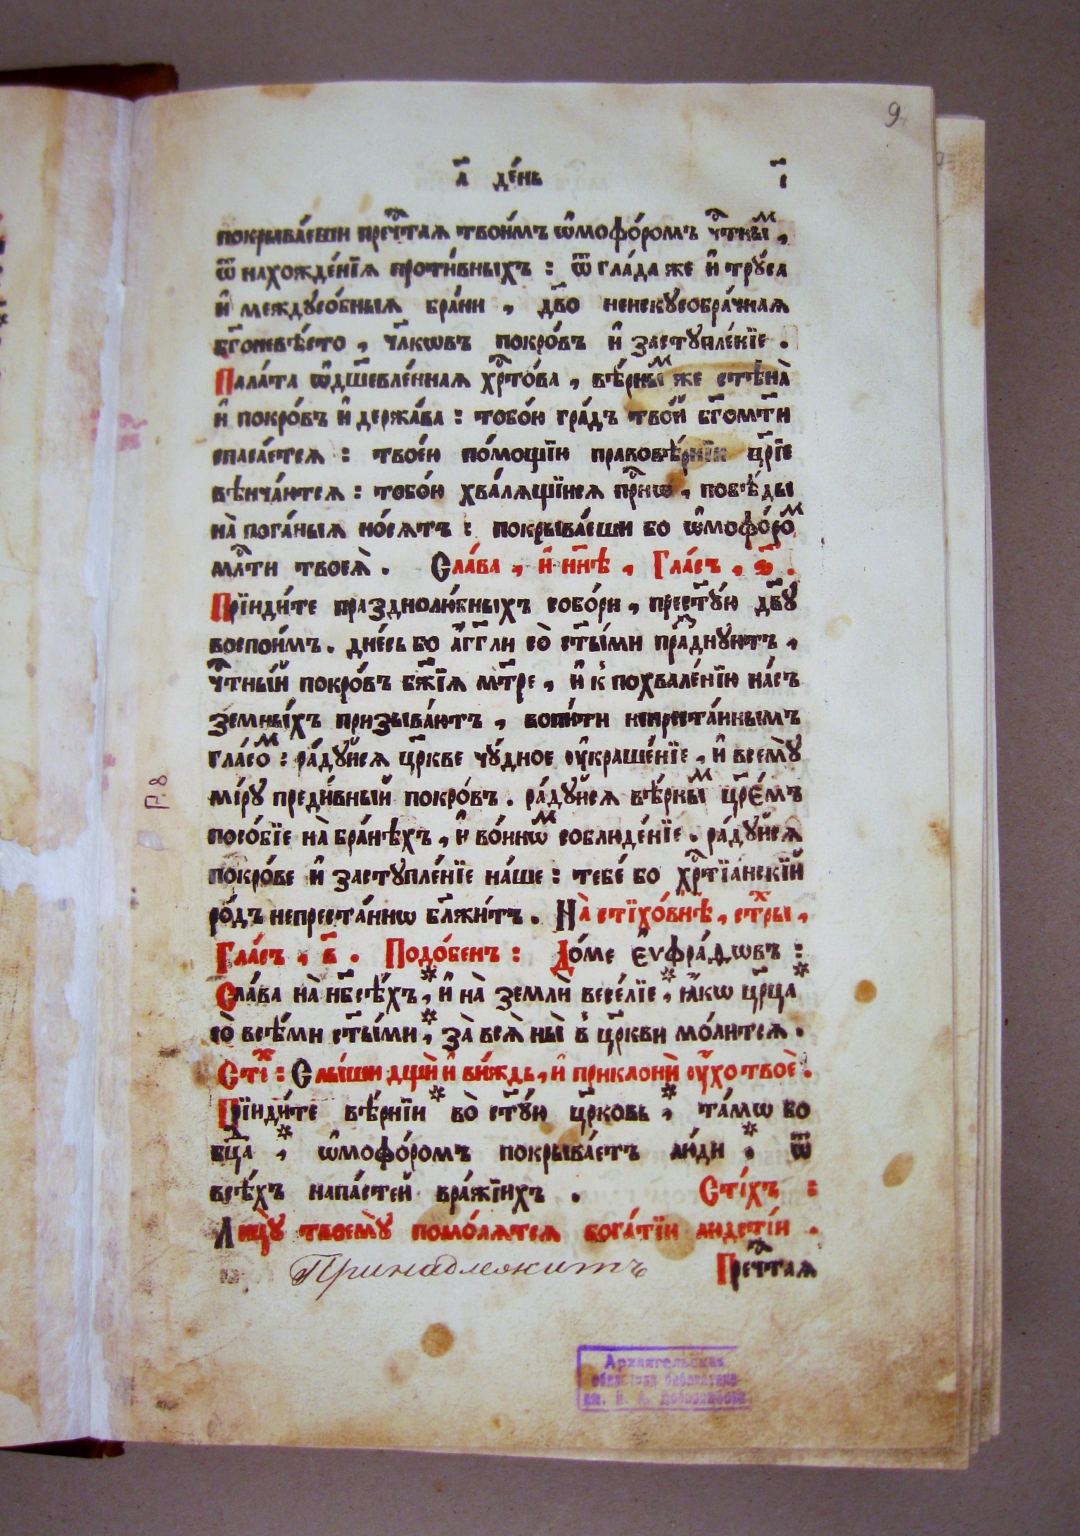 9
а҃ де́нь і҃
покрыва́еши пречⷭ҇тая твои́мъ ѡ҆мофо́ромъ чⷭ҇тны́ⷨ,
ѿ нахожде́нїя проти́вныхъ : ѿ гла́да же и҆ тру́са
и҆ междусо́бныя бра́ни , дв҃о неискусобра́чная
бг҃оневѣ́сто , чл҃кѡвъ покро́въ и҆ заступле́нїе .
Пала́та ѡ҆дш҃евле́нная хрⷭ҇то́ва , вѣ́рны́ⷨ же стѣна̀
и҆ покро́въ и҆ держа́ва : тобо́ю гра́дъ тво́й бг҃омт҃и
спаса́ется : твое́ю по́мощїю правовѣ́рнїи цр҃їе
вѣнча́ются : тобо́ю хва́лящїися прⷭ҇нѡ , побѣ́ды
на̀ пога́ныя но́сятъ : покрыва́еши бо ѡ҆мофо́роⷨ
млⷭ҇ти твоея̀ . Сла́ва , и҆ нн҃ѣ , Гла́съ , з҃ .
Прїиди́те празднолю́бныхъ собо́ри , прест҃у́ю дв҃у
воспои́мъ . дне́сь бо а҆́гг҃ли со̀ ст҃ы́ми пра́ⷥднуютъ ,
чⷭ҇тны́й покро́въ бж҃їя мт҃ре , и҆ к̾ похвале́нїю на́съ
земны́хъ призыва́ютъ , вопи́ти непреста́ннымъ
гла́соⷨ : ра́дуйся цр҃кве чу́дное ᲂу҆краше́нїе , и҆ всемꙋ̀
мі́ру преди́вный покро́въ . ра́дуйся вѣ́рныⷨ цр҃е́мъ
посо́бїе на̀ бра́нѣхъ , и҆ во́инѡⷨ соблюде́нїе . ра́дуйся
покро́ве и҆ заступле́нїе на́ше : тебе́ бо хрⷭ҇тїа́нскїй
ро́дъ непреста́ннѡ бл҃жи́тъ . На̀ стїхо́внѣ , стⷯры ,
Гла́съ , в҃ . Подо́бенъ : До́ме є҆ѵфра́ѳѡвъ :
Сла́ва на̀ нб҃сѣ́хъ ,* и҆ на̀ землѝ весе́лїе ,* ꙗ҆́кѡ цр҃ца *
со̀ всѣ́ми ст҃ы́ми ,* за̀ вся̀ ны̀ в̾ цр҃кви мо́лится .
Стⷯі : Слы́ши дщѝ и҆ ви́ждь , и҆ приклонѝ ᲂу҆́хо твоѐ .
Прїиди́те вѣ́рнїи * во̀ ст҃у́ю цр҃ковь ,* та́мѡ бо
вⷧ҇ца ,* ѡ҆мофо́ромъ покрыва́етъ лю́ди * . ѿ
всѣ́хъ напа́стей вра́жїихъ . Сті́хъ :
Лицу̀ твоему̀ помо́лятся бога́тїи людсті́и .
Принадлежитъ Пречⷭ҇тая
Архангельская
областная библиотека
им. Н. А. Добролюбова